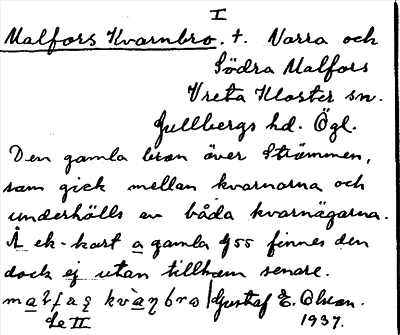 I
Malfors Kvarnbro. †. Norra och
Södra Malfors
Vreta Kloster sn.
Gullbergs hd. Ögl.
Den gamla bron över Strömmen,
som gick mellan kvarnarna och
underhölls av båda kvarnägarna.
Å ek-kart a gamla 955 finnes den
dock ej utan tillkom senare.
Gustaf E. Olson.
Le II 1937.